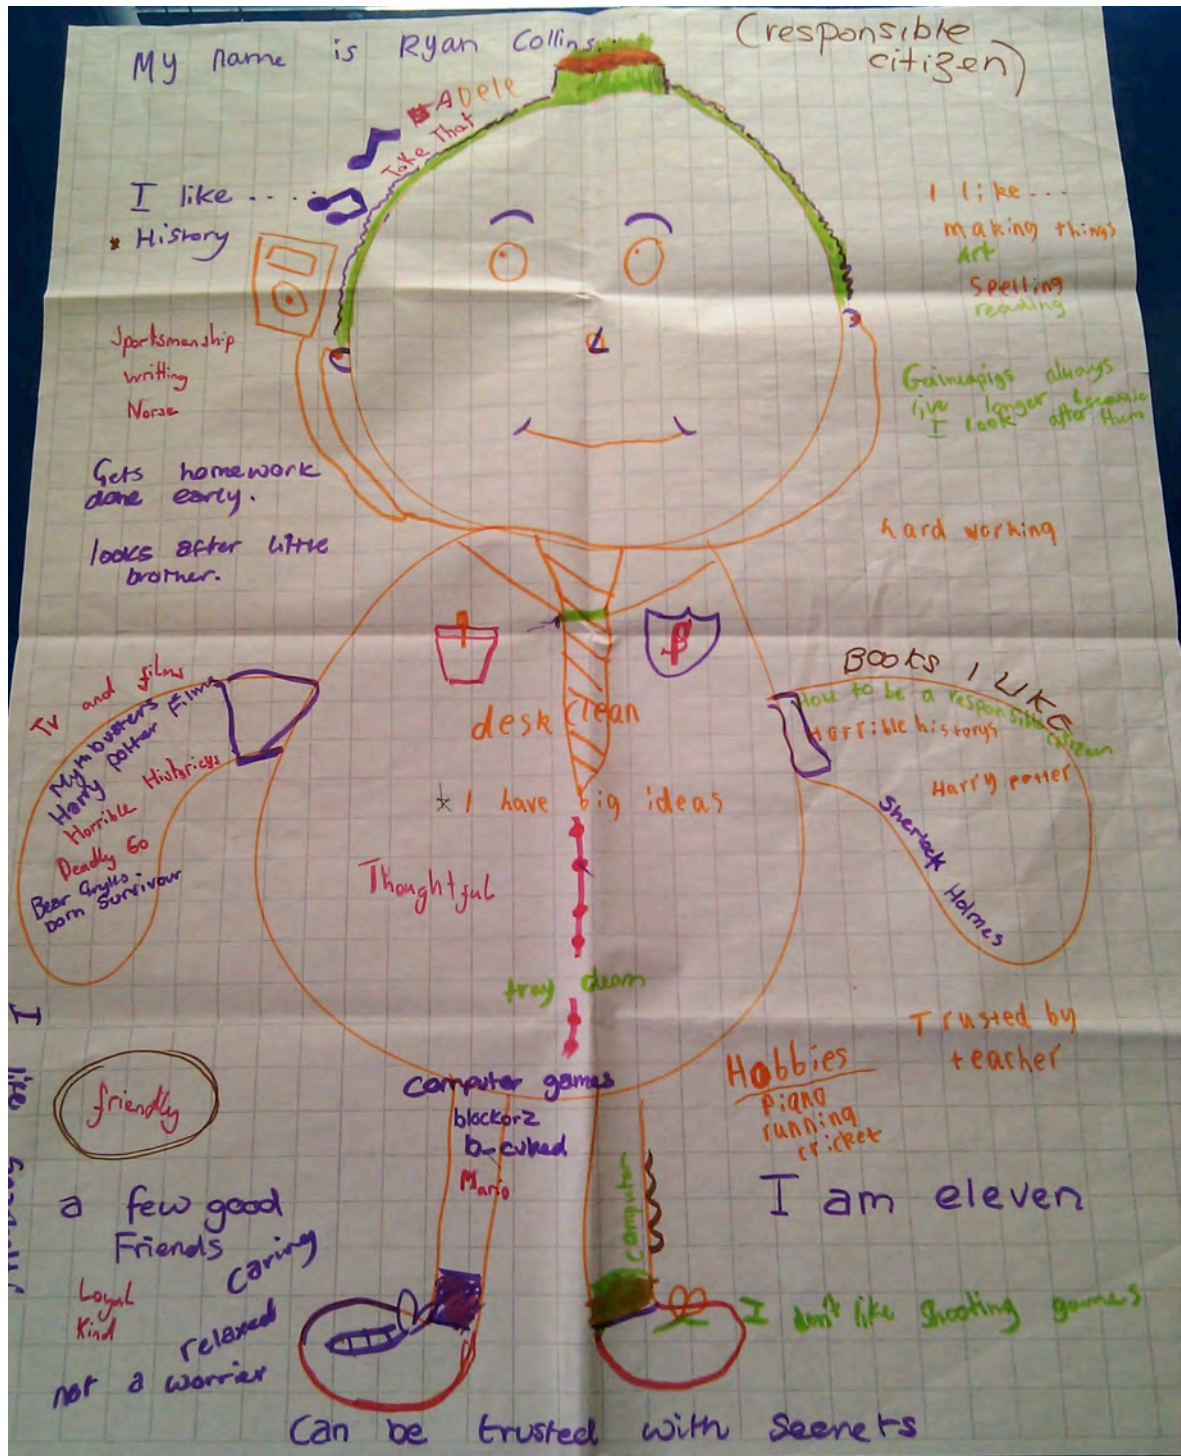 My name is Ryan Collins...
(responsible
citizen)
Adele
Take That
I like ....
* History
Sportsmanship
writting
Norse
Gets homework
done early.
looks after little
brother.
I like ...
making things
Art
Spelling
reading
Guineapigs always
live longer because
I look after them
hard working
Tv and films
Mythbusters
Harry potter films
Horrible Historicys
Deadly 60
Bear Grylls.
born survivour
desk clean
* I have big ideas
Thoughtful
tray clean
BOOKS I LIKE
How to be a responsible citizen
Horrible historys
Harry potter
Sherlock Holmes
Trusted by
teacher
I like
friendly
a few good
Friends
caring
Loyal
Kind
relaxed
not a worrier
computer games
blockorz
b-cubed
Mario
computer
Hobbies
piano
running
cricket
I am eleven
I don't like shooting games
Can be trusted with secrets